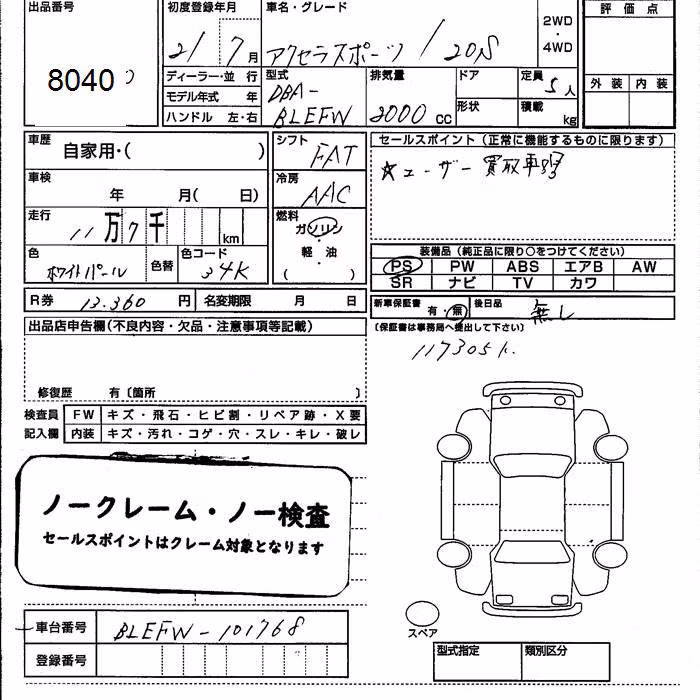 出品番号
8040
初度登録年月
21 7 月
車名・グレード
アクセラスポーツ / 20S
2WD
・
4WD
評価点
外装 内装
ディーラー・並 行
モデル年式 年
ハンドル 左・右
型式
DBA-
BLEFW
排気量
2000 cc
ドア
形状
定員
5 人
積載
kg
車歴
自家用・( )
車検
年 月( 日)
走行
11 万 7 千 km
色
ホワイトパール
色替
色コード
34K
シフト
FAT
冷房
AAC
燃料
ガソリン
・
軽 油
( )
セールスポイント (正常に機能するものに限ります)
☆ユーザー買取車
装備品 (純正品に限り○をつけてください)
PS PW ABS エアB AW
SR ナビ TV カワ
R券 13.360 円 名変期限 月 日
新車保証書 有・無 後日品 無し
(保証書は事務局へ提出して下さい)
117305k
出品店申告欄(不良内容・欠品・注意事項等記載)
修復歴 有〔箇所 〕
検査員 FW キズ・飛石・ヒビ割・リペア跡・X要
記入欄 内装 キズ・汚れ・コゲ・穴・スレ・キレ・破レ
ノークレーム・ノー検査
セールスポイントはクレーム対象となります
車台番号 BLEFW-101768
登録番号
スペア
型式指定 類別区分